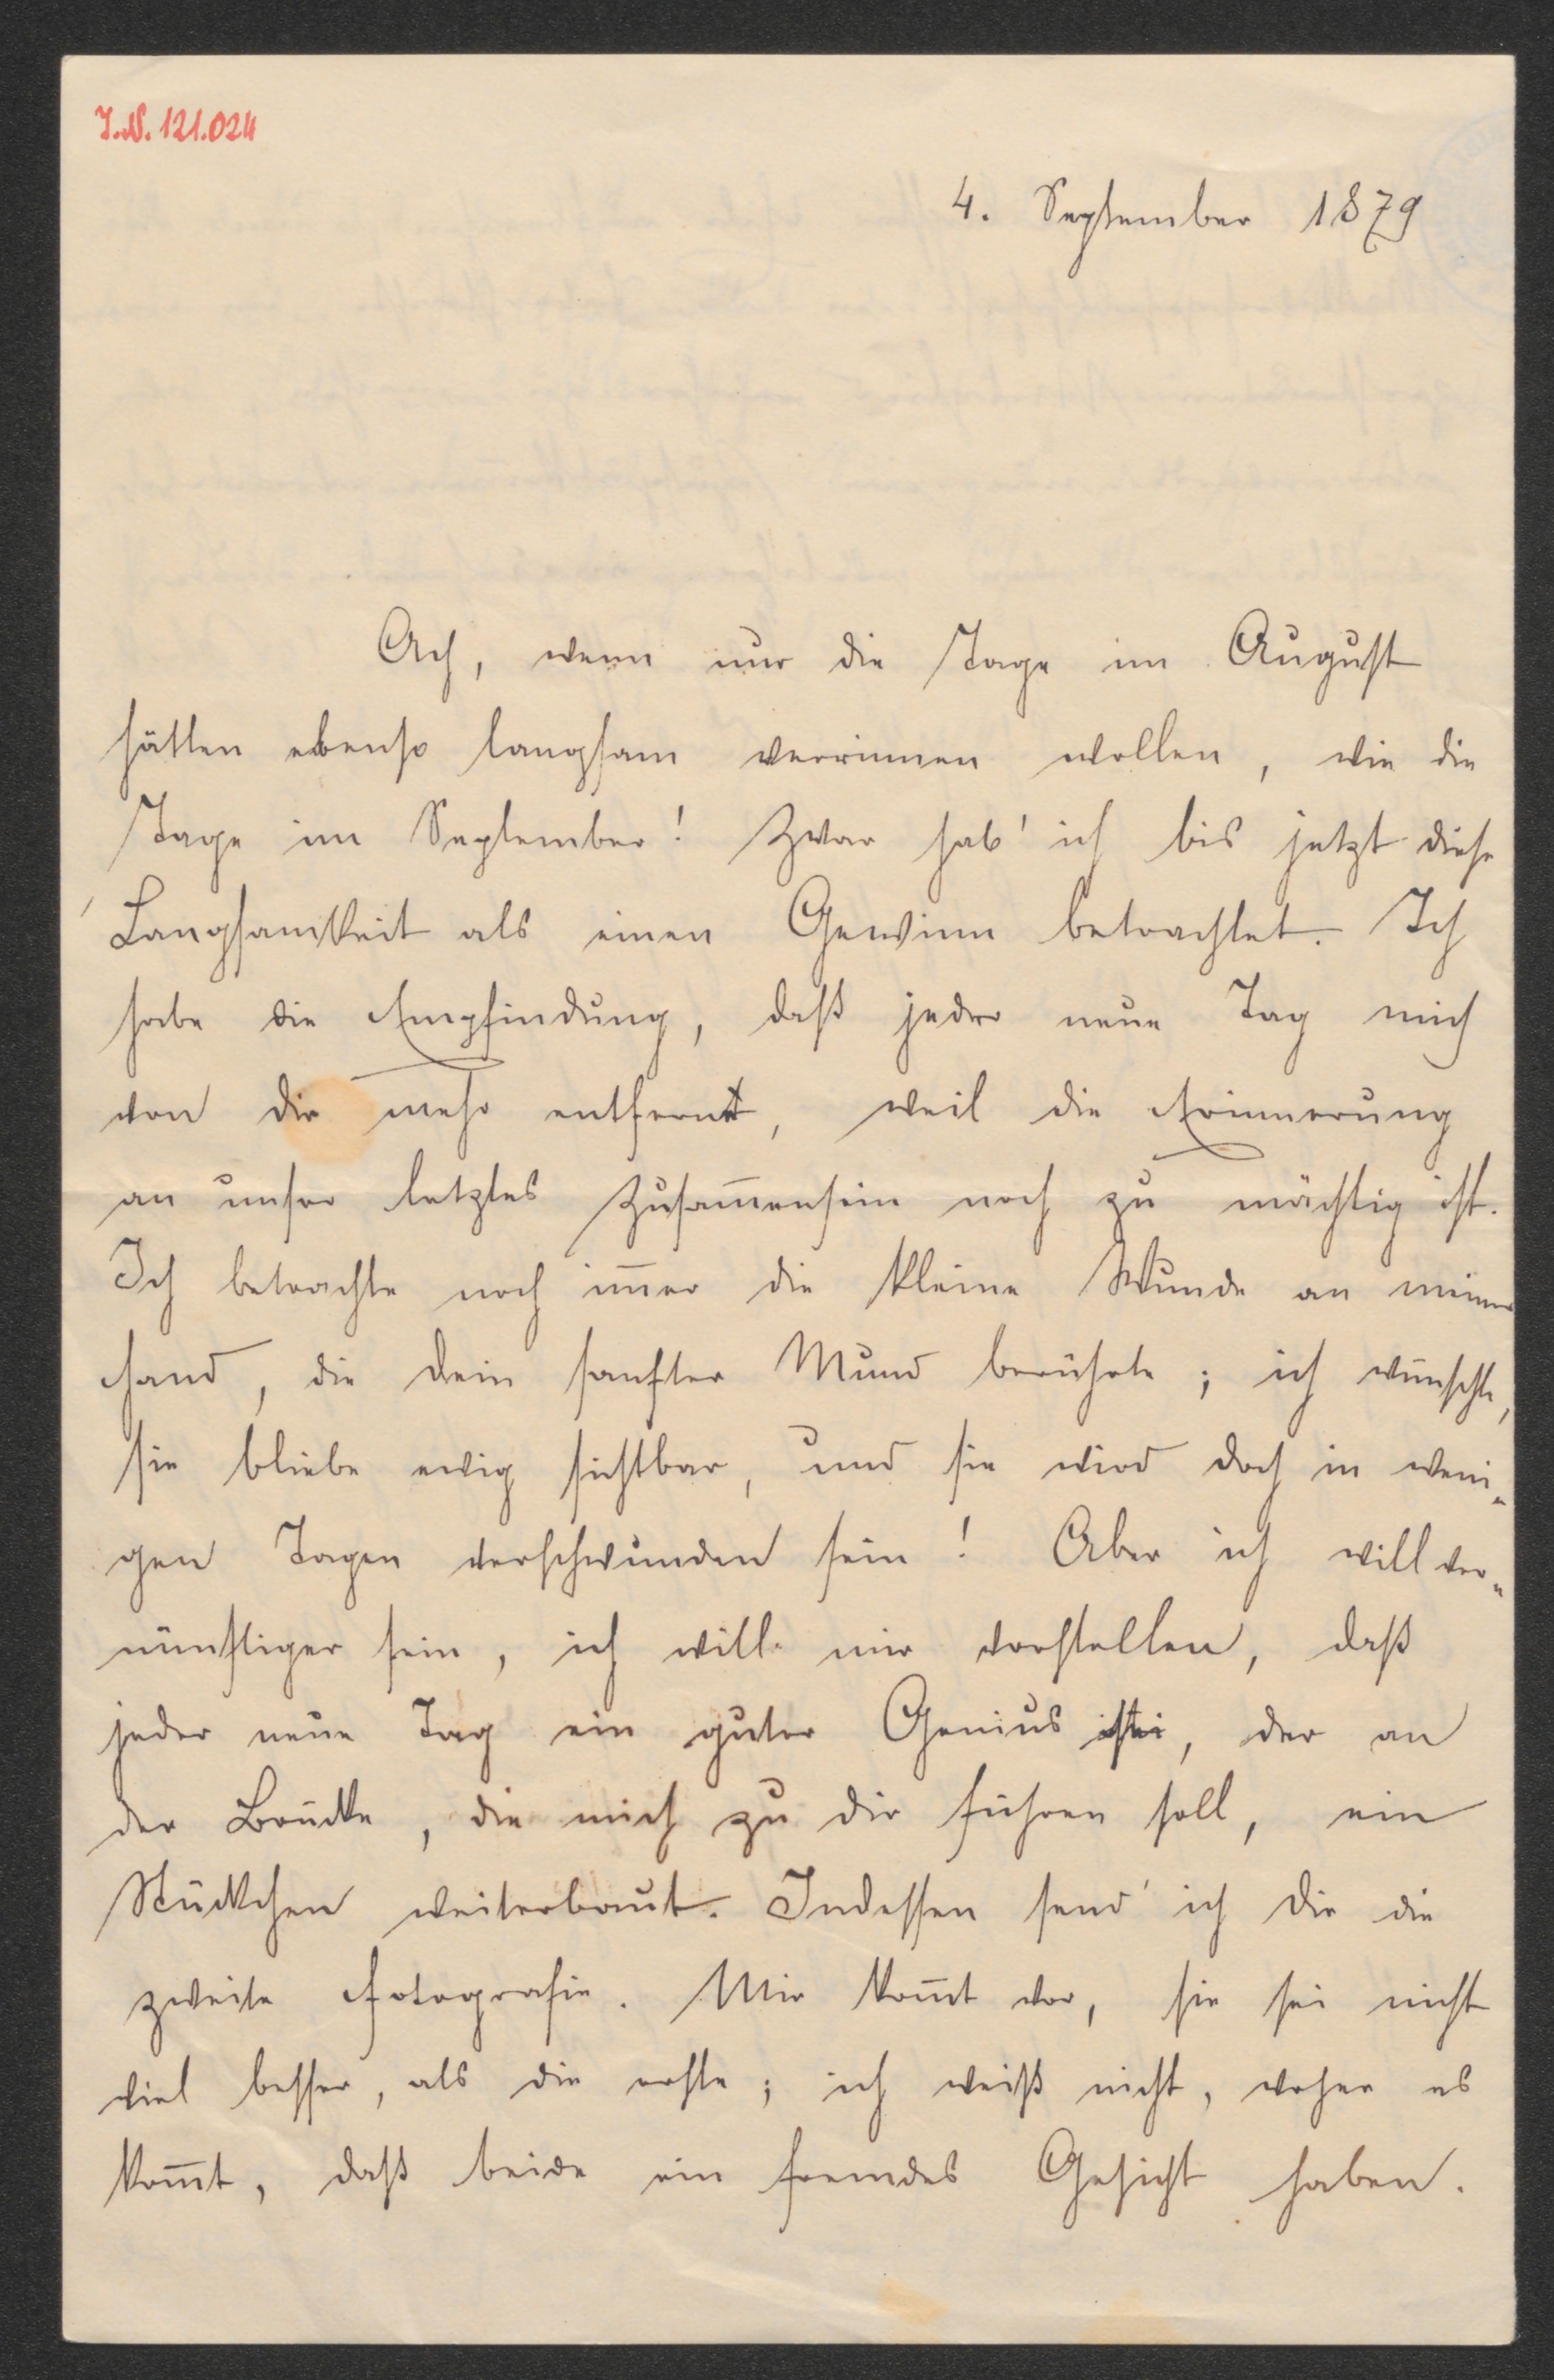 I.N. 121.024
4. September 1879
Ach, wenn nur die Tage im August
hätten ebenso langsam verrinnen wollen, wie die
Tage im September! Zwar hab' ich bis jetzt diese
Langsamkeit als einen Gewinn betrachtet. Ich
habe die Empfindung, daß jeder neue Tag mich
von dir mehr entfernt, weil die Erinnerung
an unser letztes Zusam̅ensein noch zu mächtig ist.
Ich betrachte noch im̅er die kleine Wunde an meiner
Hand, die dein sanfter Mund berührte; ich wünschte,
sie bliebe ewig sichtbar, und sie wird doch in weni-
gen Tagen verschwunden sein! Aber ich will ver-
nünftiger sein, ich will mir vorstellen, daß
jeder neue Tag ein guter Genius sei, der an
der Brücke, die mich zu dir führen soll, ein
Stückchen weiterbaut. Indessen send' ich dir die
zweite Fotografie. Mir kom̅t vor, sie sei nicht
viel besser, als die erste; ich weiß nicht, woher es
kom̅t, daß beide ein fremdes Gesicht haben.